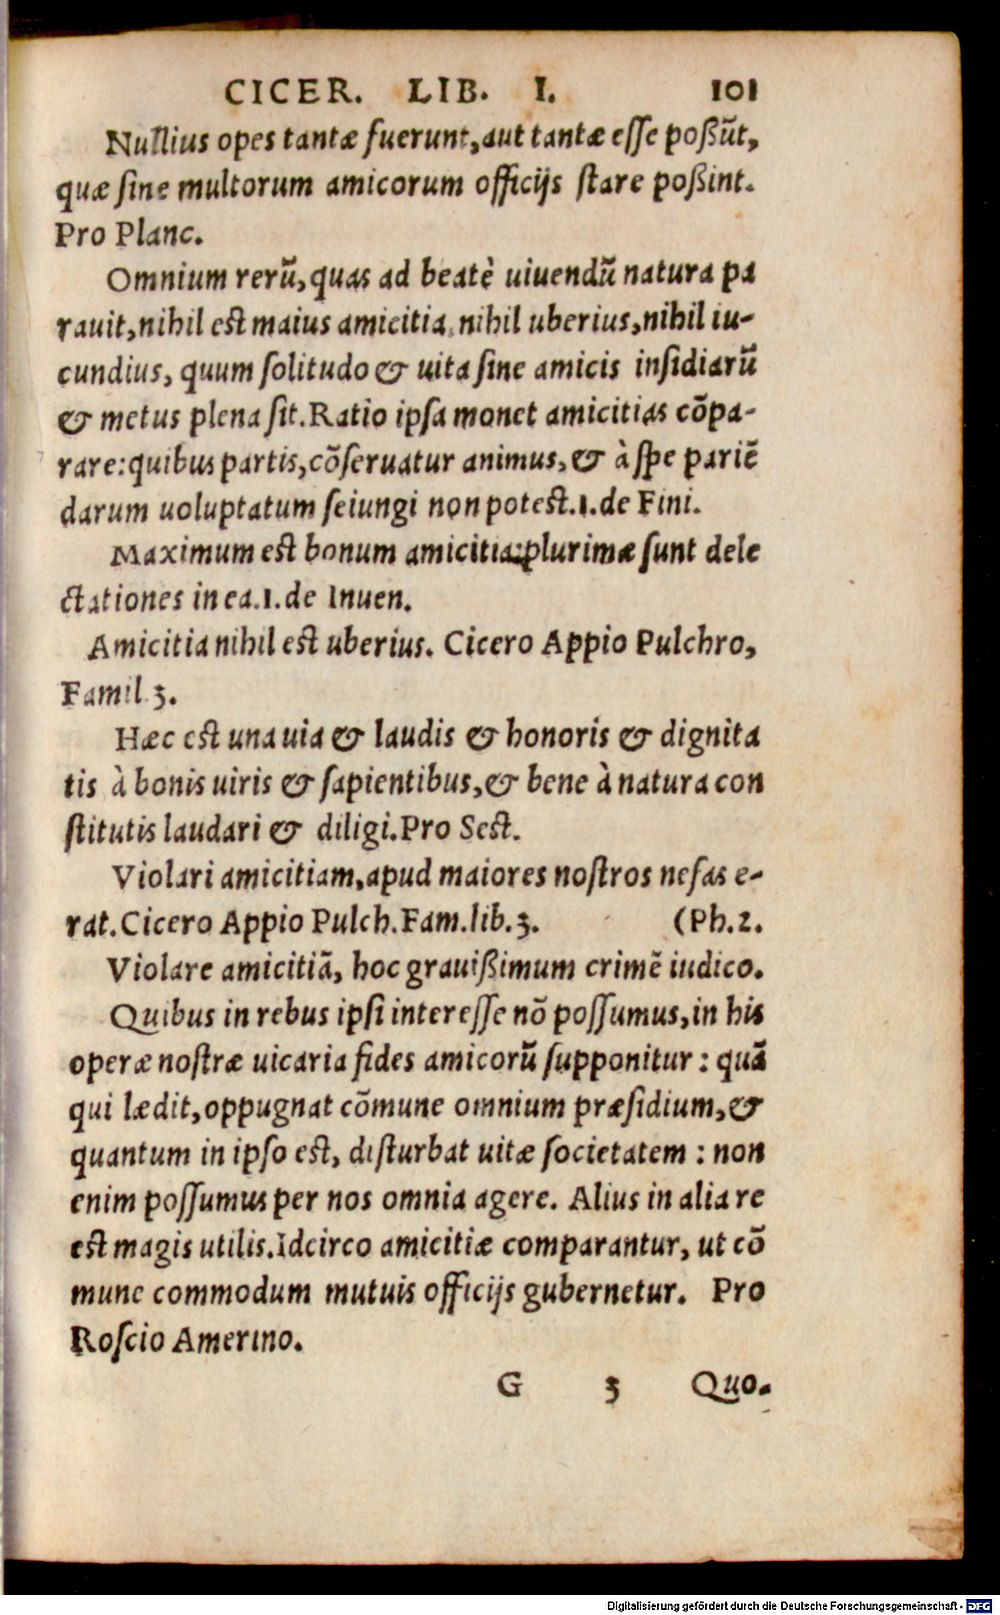 CICER. LIB. I. 101
Nullius opes tantæ fuerunt, aut tantæ esse poßũt,
quæ sine multorum amicorum officijs stare poßint.
Pro Planc.
Omnium rerũ, quas ad beatè uiuendũ natura pa
rauit, nihil est maius amicitia, nihil uberius, nihil iu-
cundius, quum solitudo & uita sine amicis insidiarũ
& metus plena sit. Ratio ipsa monet amicitias cõpa-
rare: quibus partis, cõseruatur animus, & à spe pariẽ
darum uoluptatum seiungi non potest. 1. de Fini.
Maximum est bonum amicitia: plurimæ sunt dele
ctationes in ea. 1. de Inuen.
Amicitia nihil est uberius. Cicero Appio Pulchro,
Famil 3.
Hæc est una uia & laudis & honoris & dignita
tis à bonis uiris & sapientibus, & bene à natura con
stitutis laudari & diligi. Pro Sest.
Violari amicitiam, apud maiores nostros nefas e-
rat. Cicero Appio Pulch. Fam. lib. 3. (Ph. 2.
Violare amicitiã, hoc grauißimum crimẽ iudico.
Quibus in rebus ipsi interesse nõ possumus, in his
operæ nostræ uicaria fides amicorũ supponitur: quã
qui lædit, oppugnat cõmune omnium præsidium, &
quantum in ipso est, disturbat uitæ societatem: non
enim possumus per nos omnia agere. Alius in alia re
est magis utilis. Idcirco amicitiæ comparantur, ut cõ
mune commodum mutuis officijs gubernetur. Pro
Roscio Amerino.
G 3 Quo.
Digitalisierung gefördert durch die Deutsche Forschungsgemeinschaft - DFG